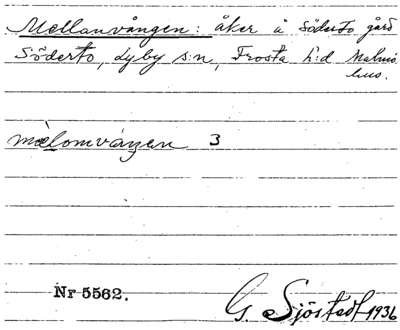 Mellanvången: åker å Söderto gård
Söderto, Lyby s:n, Frosta h:d Malmö
hus.
mèlomvång̨en 3
Nr 5562.
G. Sjöstedt 1936